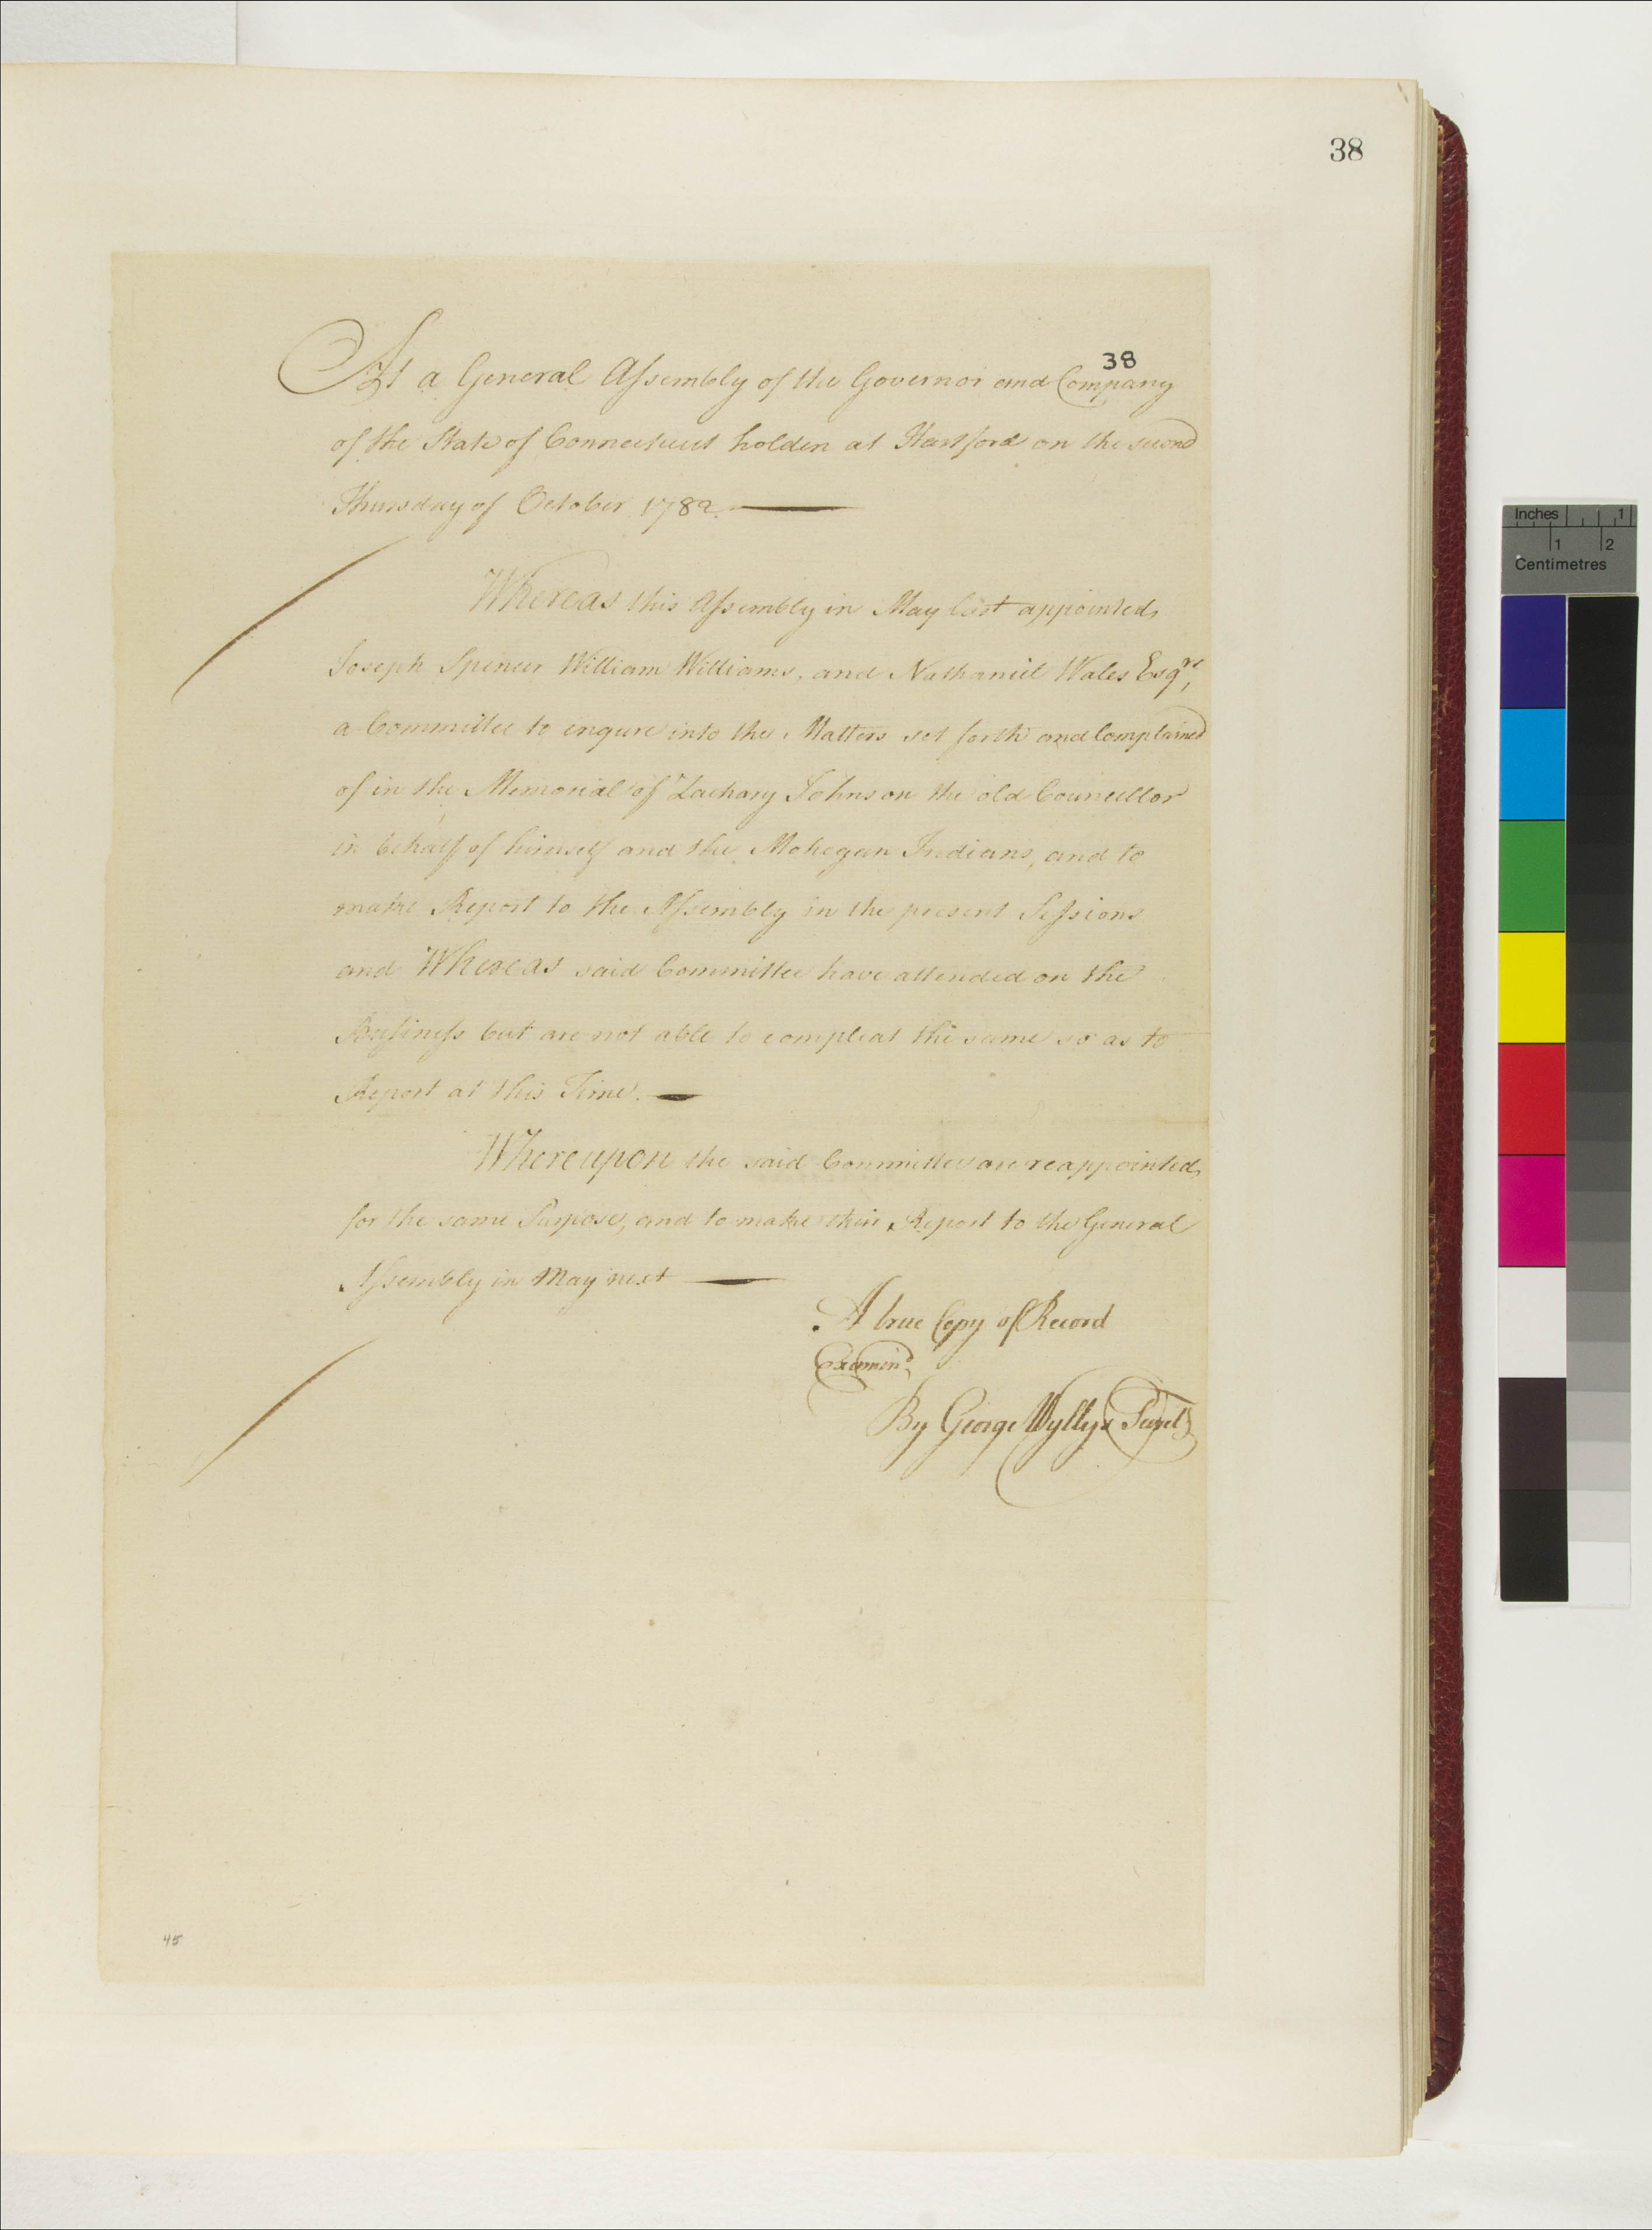 38
38
At a General Assembly of the Governor and Company
of the State of Connecticut holden at Hartford on the second
Thursday of October 1782.
Whereas this Assembly in May last appointed
Joseph Spencer William Williams, and Nathaniel Wales Esqrs,
a Committee to enquire into the Matters set forth and Complained
of in the Memorial of Zachary Johnson the old Councellor
in behalf of himself and the Mohegan Indians, and to
make Report to the Assembly in the present Sessions
and Whereas said Committee have attended on the
Business but are not able to compleat the same so as to
Report at this Time.
Whereupon the said Committee are reappointed
for the same Purpose, and to make their Report to the General
Assembly in May next
A true Copy of Record
Examind
By George Wyllys Secrety
45
Inches 1
1 2
Centimetres